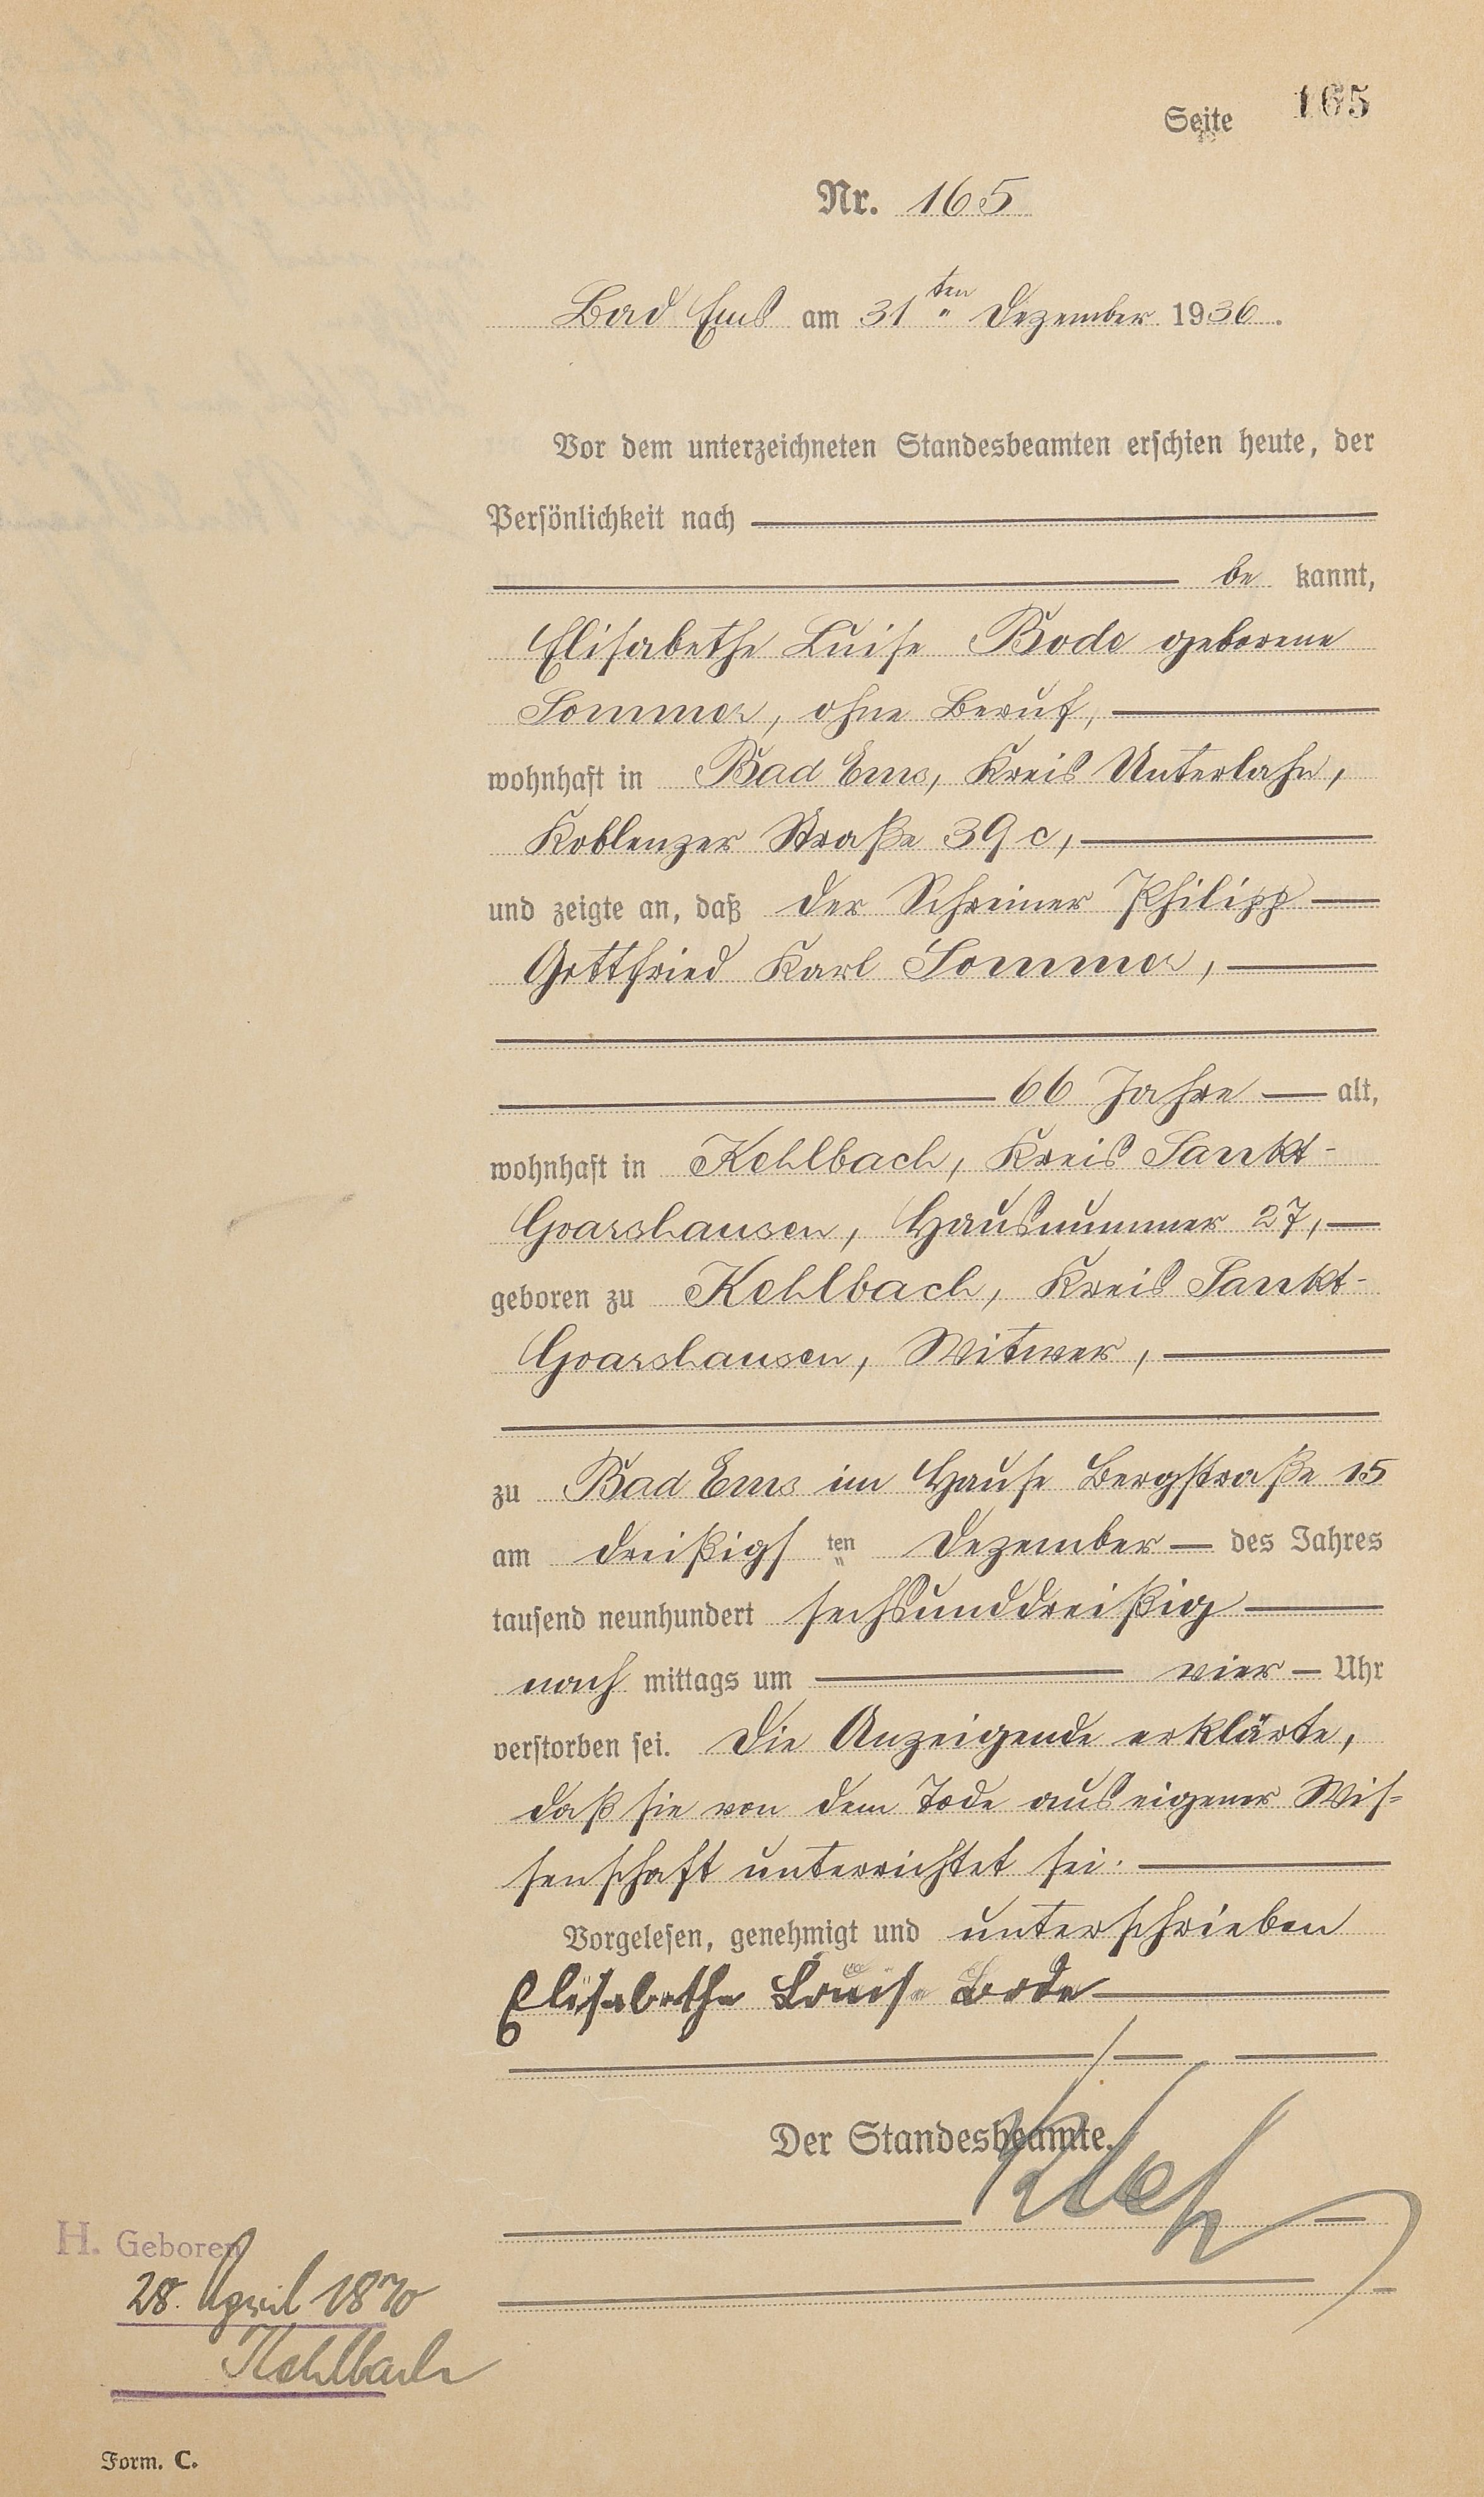 Seite 165
Nr. 165
Bad Ems am 31ten Dezember 1936.
Vor dem unterzeichneten Standesbeamten erschien heute, der
Persönlichkeit nach
be kannt,
Elisabethe Luise Bode geborene
Sommer, ohne Beruf,
wohnhaft in Bad Ems, Kreis Unterlahn,
Koblenzer Straße 39 c,
und zeigte an, daß der Schreiner Philipp
Gottfried Karl Sommer,
66 Jahre alt,
wohnhaft in Kehlbach, Kreis Sankt-
Goarshausen, Hausnummer 27,
geboren zu Kehlbach, Kreis Sankt-
Goarshausen, Witwer,
zu Bad Ems im Hause Bergstraße 15
am dreißigs ten Dezember des Jahres
tausend neunhundert sechsunddreißig
nach mittags um vier Uhr
verstorben sei. Die Anzeigende erklärte,
daß sie von dem Tode aus eigener Wis-
senschaft unterrichtet sei.
Vorgelesen, genehmigt und unterschrieben
Elisabethe Louise Bode
Der Standesbeamte.
H. Geboren
28. April 1870
Kehlbach
Form. C.